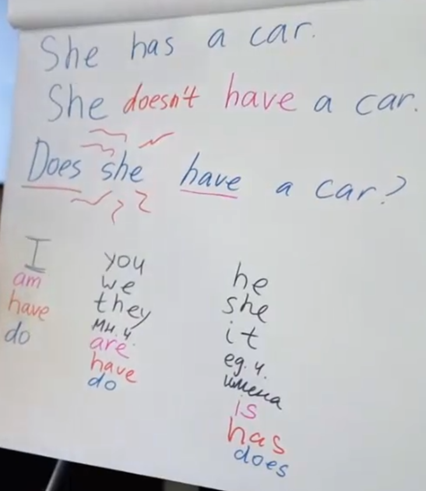 She has a car.
She doesn't have a car.
Does she have a car?
I
am
have
do
you
we
they
мн.ч.
are
have
do
he
she
it
ед.ч.
имена
is
has
does